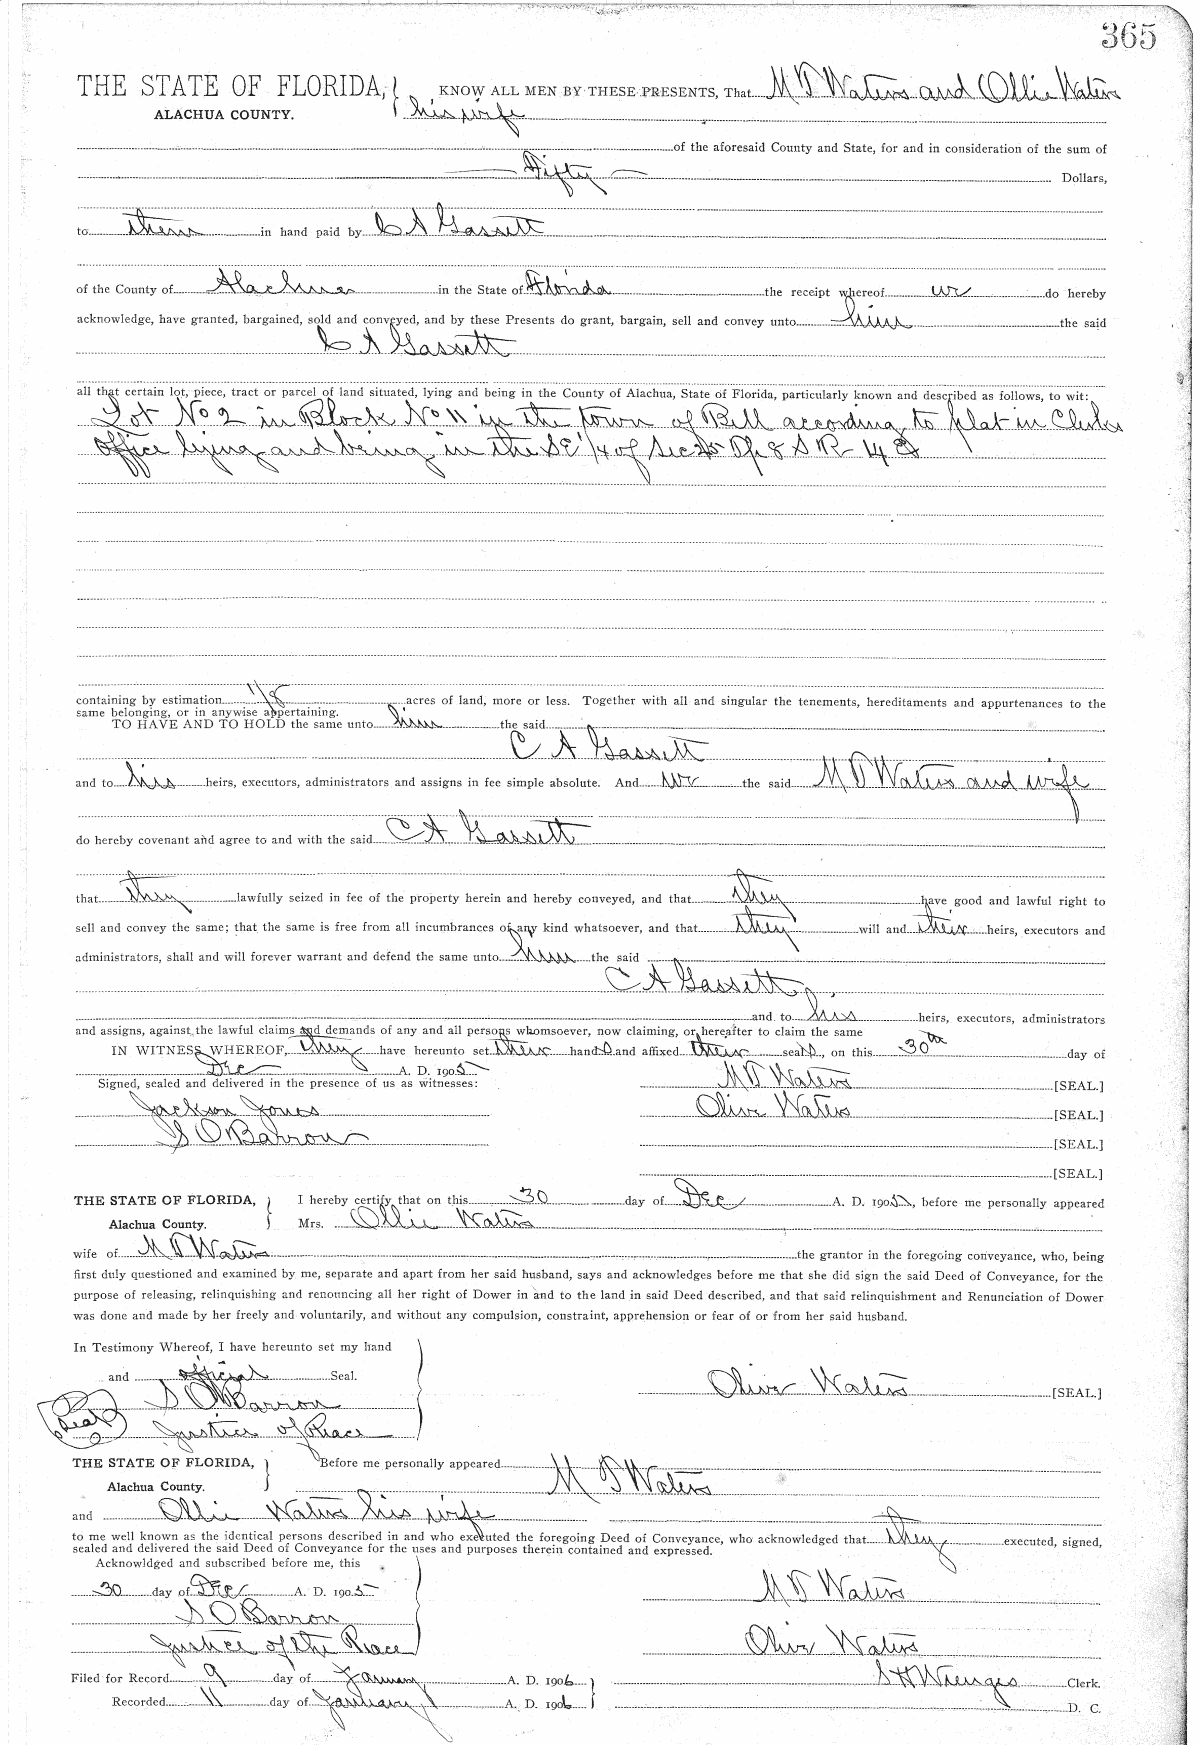 365
THE STATE OF FLORIDA, KNOW ALL MEN BY THESE PRESENTS, That M D Waters and Ollie Waters
ALACHUA COUNTY. his wife
of the aforesaid County and State, for and in consideration of the sum of
Fifty Dollars,
to them in hand paid by C A Gassett
of the County of Alachua in the State of Florida the receipt whereof we do hereby
acknowledge, have granted, bargained, sold and conveyed, and by these Presents do grant, bargain, sell and convey unto him the said
C A Gassett
all that certain lot, piece, tract or parcel of land situated, lying and being in the County of Alachua, State of Florida, particularly known and described as follows, to wit:
Lot No 2 in Block No 11 in the town of Bell according to plat in Clerks
office lying and being in the SE 1/4 of Sec 25 Tp 8 S R 14 E
containing by estimation 1/8 acres of land, more or less. Together with all and singular the tenements, hereditaments and appurtenances to the
same belonging, or in anywise appertaining.
TO HAVE AND TO HOLD the same unto him the said
C A Gassett
and to his heirs, executors, administrators and assigns in fee simple absolute. And we the said M D Waters and wife
do hereby covenant and agree to and with the said C A Gassett
that they lawfully seized in fee of the property herein and hereby conveyed, and that they have good and lawful right to
sell and convey the same; that the same is free from all incumbrances of any kind whatsoever, and that they will and their heirs, executors and
administrators, shall and will forever warrant and defend the same unto him the said
C A Gassett
and to his heirs, executors, administrators
and assigns, against the lawful claims and demands of any and all persons whomsoever, now claiming, or hereafter to claim the same
IN WITNESS WHEREOF, they have hereunto set their hands and affixed their seals, on this 30th day of
Dec A. D. 1905
Signed, sealed and delivered in the presence of us as witnesses: M D Waters [SEAL.]
Jackson Jones Olive Waters [SEAL.]
S O Barron [SEAL.]
[SEAL.]
THE STATE OF FLORIDA, I hereby certify that on this 30 day of Dec A. D. 1905, before me personally appeared
Alachua County. Mrs. Ollie Waters
wife of M D Waters the grantor in the foregoing conveyance, who, being
first duly questioned and examined by me, separate and apart from her said husband, says and acknowledges before me that she did sign the said Deed of Conveyance, for the
purpose of releasing, relinquishing and renouncing all her right of Dower in and to the land in said Deed described, and that said relinquishment and Renunciation of Dower
was done and made by her freely and voluntarily, and without any compulsion, constraint, apprehension or fear of or from her said husband.
In Testimony Whereof, I have hereunto set my hand
and official Seal. Olive Waters [SEAL.]
Seal S O Barron
Justice of Peace
THE STATE OF FLORIDA, Before me personally appeared M D Waters
Alachua County.
and Ollie Waters his wife
to me well known as the identical persons described in and who executed the foregoing Deed of Conveyance, who acknowledged that they executed, signed,
sealed and delivered the said Deed of Conveyance for the uses and purposes therein contained and expressed.
Acknowldged and subscribed before me, this
30 day of Dec A. D. 1905 M D Waters
S O Barron
Justice of the Peace Olive Waters
Filed for Record 9 day of January A. D. 1906 S H Wienges Clerk.
Recorded 11 day of January A. D. 1906 D. C.